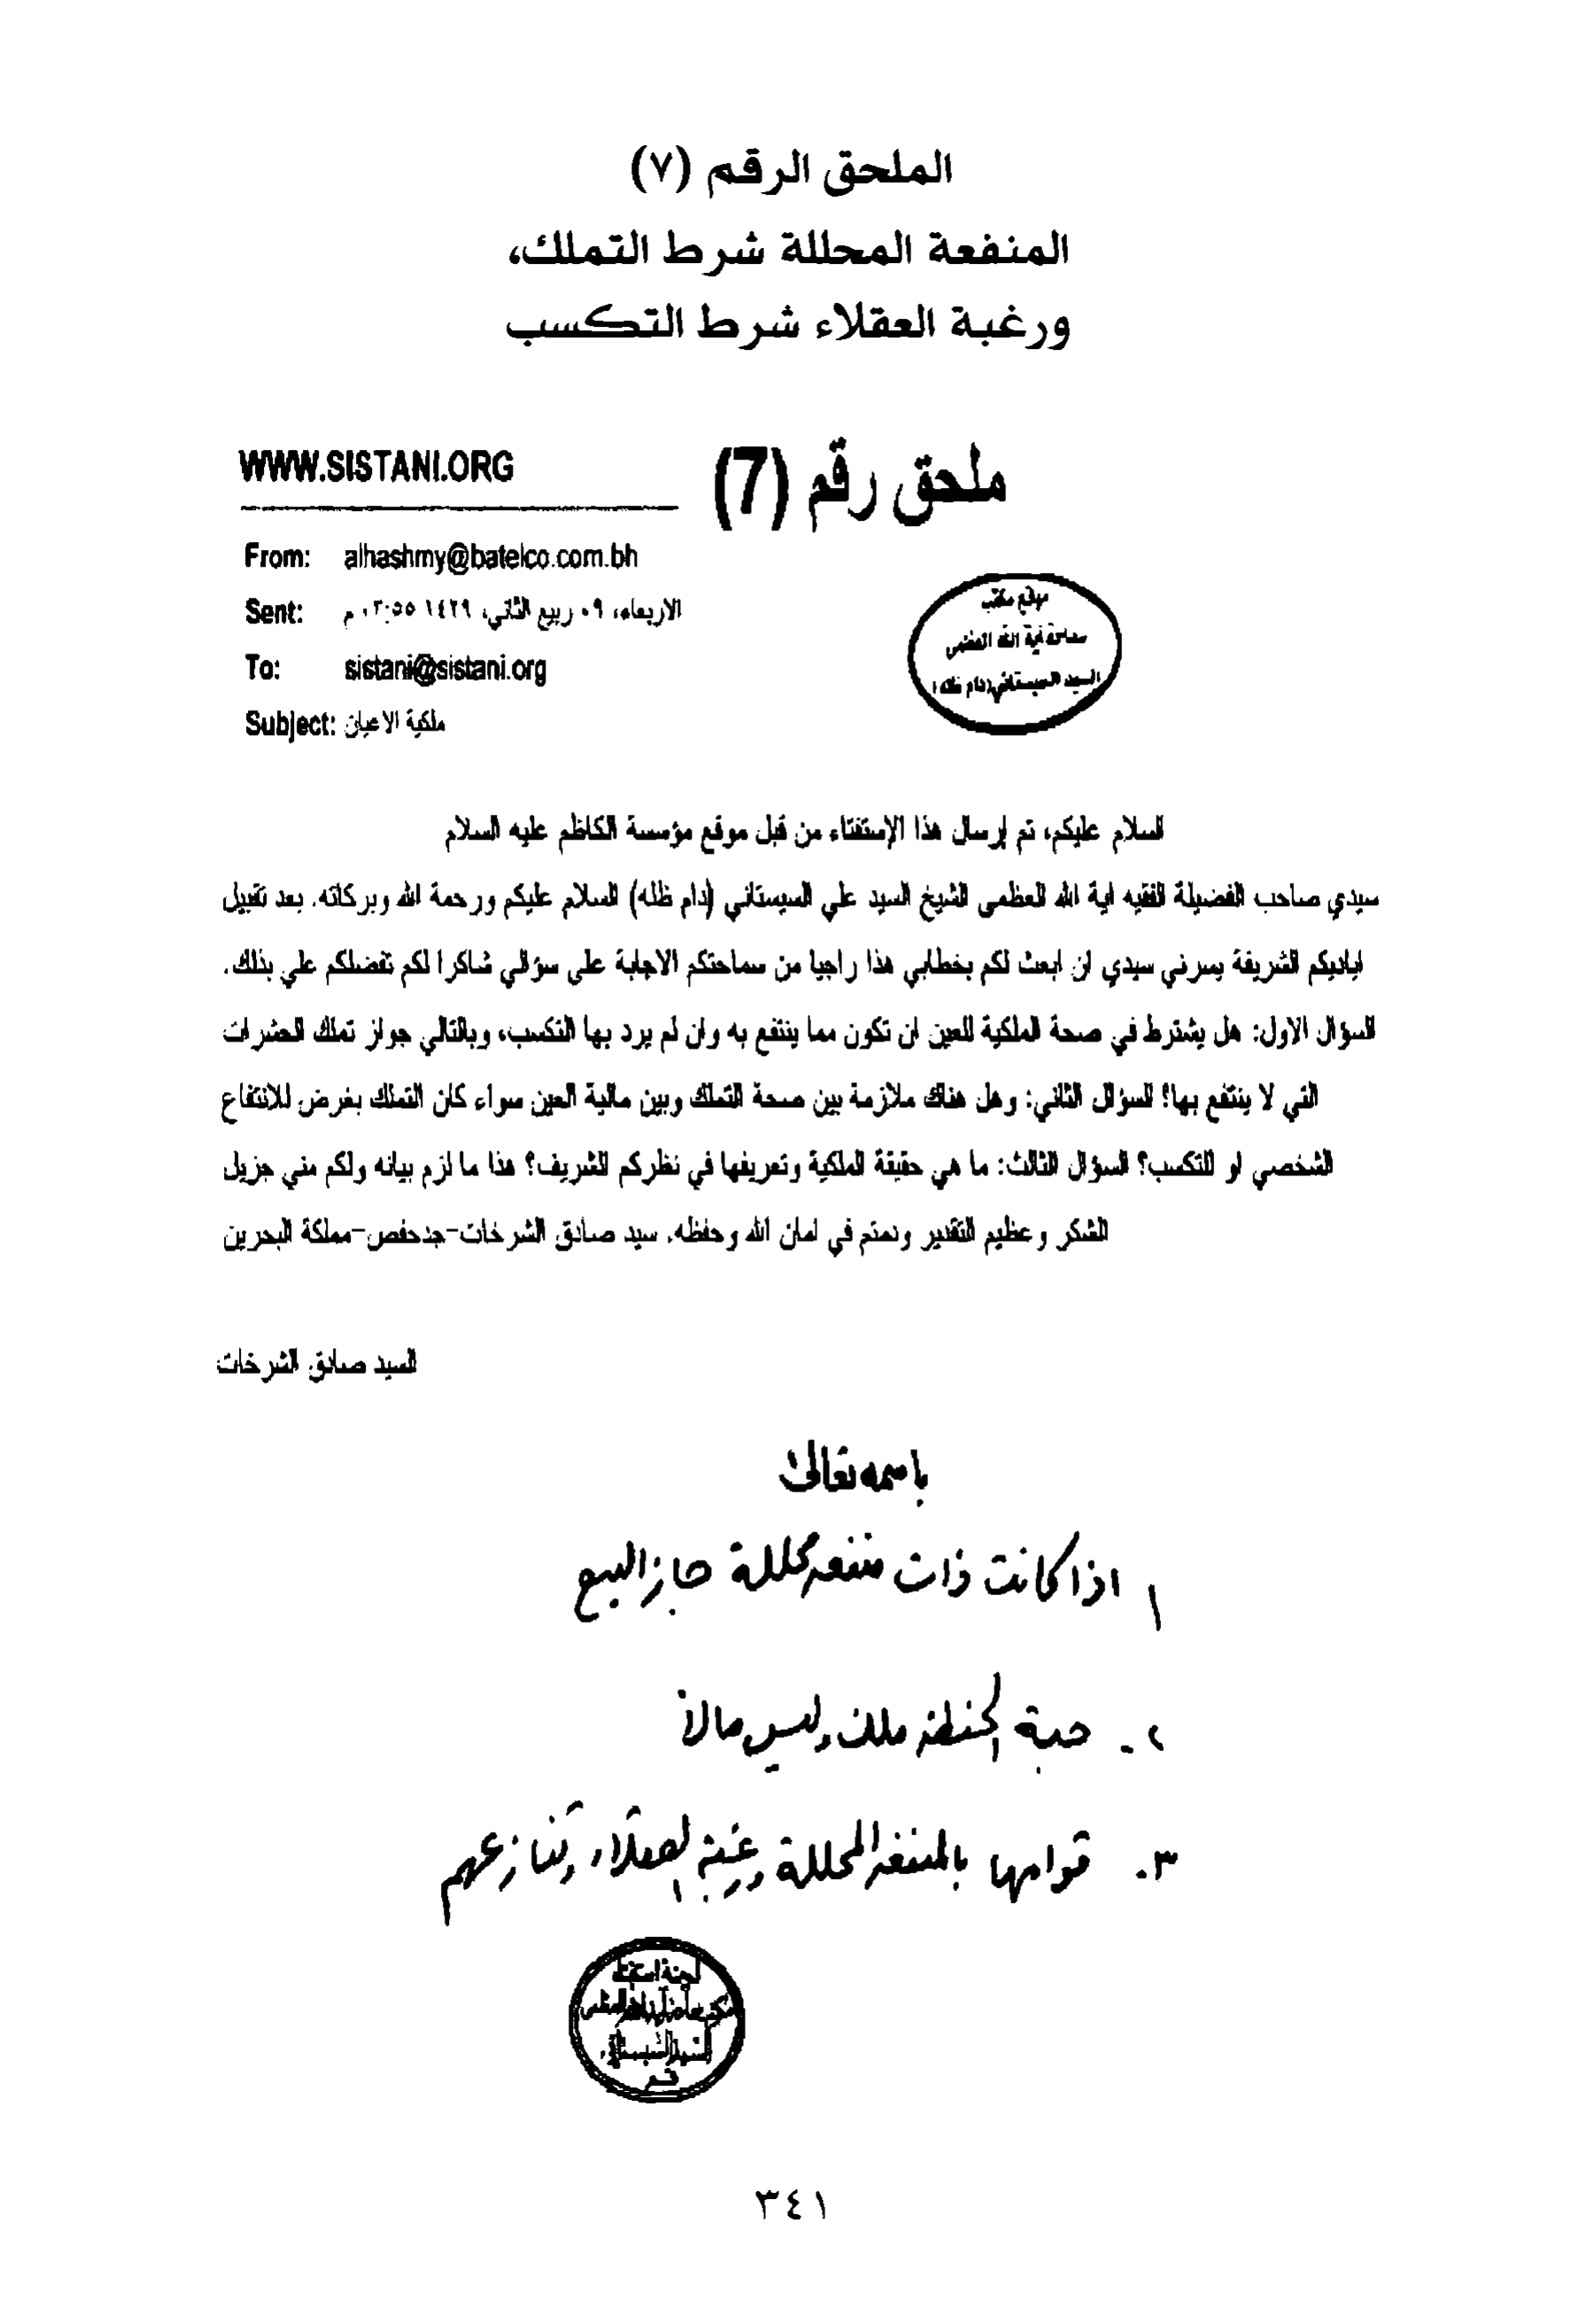 الملحق الرقم (٧)
المنفعة المحللة شرط التملك،
ورغبة العقلاء شرط التكسب
WWW.SISTANI.ORG
ملحق رقم (7)
From: alhashmy@batelco.com.bh
Sent: الاربعاء، ٠٩ ربيع الثاني، ١٤٢٩ ٠٣:٥٥ م
To: sistani@sistani.org
Subject: ملكية الاعيان
موقع مكتب
سماحة آية الله العظمى
السيد السيستاني (دام ظله)
السلام عليكم، تم إرسال هذا الإستفتاء من قبل موقع مؤسسة الكاظم عليه السلام
سيدي صاحب الفضيلة الفقيه اية الله العظمى الشيخ السيد علي السيستاني (دام ظله) السلام عليكم ورحمة الله وبركاته. بعد تقبيل
اياديكم الشريفة يسرني سيدي ان ابعث لكم بخطابي هذا راجيا من سماحتكم الاجابة على سؤالي شاكرا لكم تفضلكم علي بذلك.
السؤال الاول: هل يشترط في صحة الملكية للعين ان تكون مما ينتفع به وان لم يرد بها التكسب، وبالتالي جواز تملك الحشرات
التي لا ينتفع بها؟ السؤال الثاني: وهل هناك ملازمة بين صحة التملك وبين مالية العين سواء كان التملك بغرض للانتفاع
الشخصي او للتكسب؟ السؤال الثالث: ما هي حقيقة الملكية وتعريفها في نظركم الشريف؟ هذا ما لزم بيانه ولكم مني جزيل
الشكر وعظيم التقدير ودمتم في امان الله وحفظه. سيد صادق الشرخات-جدحفص-مملكة البحرين
السيد صادق الشرخات
باسمه تعالى
١ اذا كانت ذات منفعة محللة جاز البيع
٢. حبة الحنطة ملك وليس مالاً
٣. قوامها بالمنفعة المحللة ورغبة العقلاء وتنازعهم
لجنة استفتاء
مكتب سماحة آية الله العظمى
السيد السيستاني
قم
٣٤١